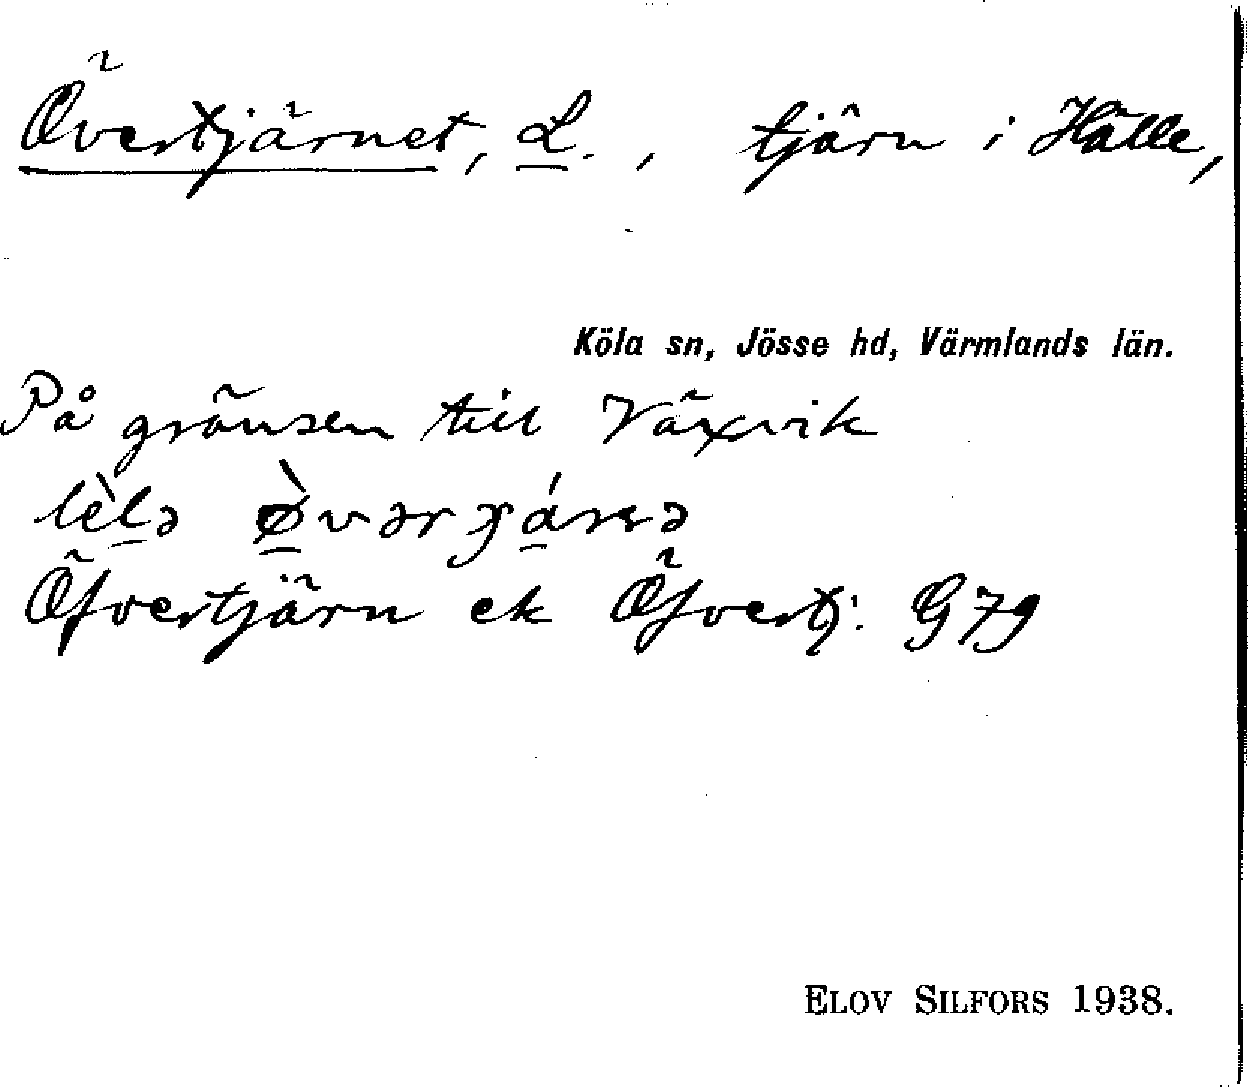 Övertjärnet, L., tjärn i Hälle,
Köla sn, Jösse hd, Värmlands län.
På gränsen till Växvik
Öfvertjärn ek Öfvertj: G79
ELOV SILFORS 1938.